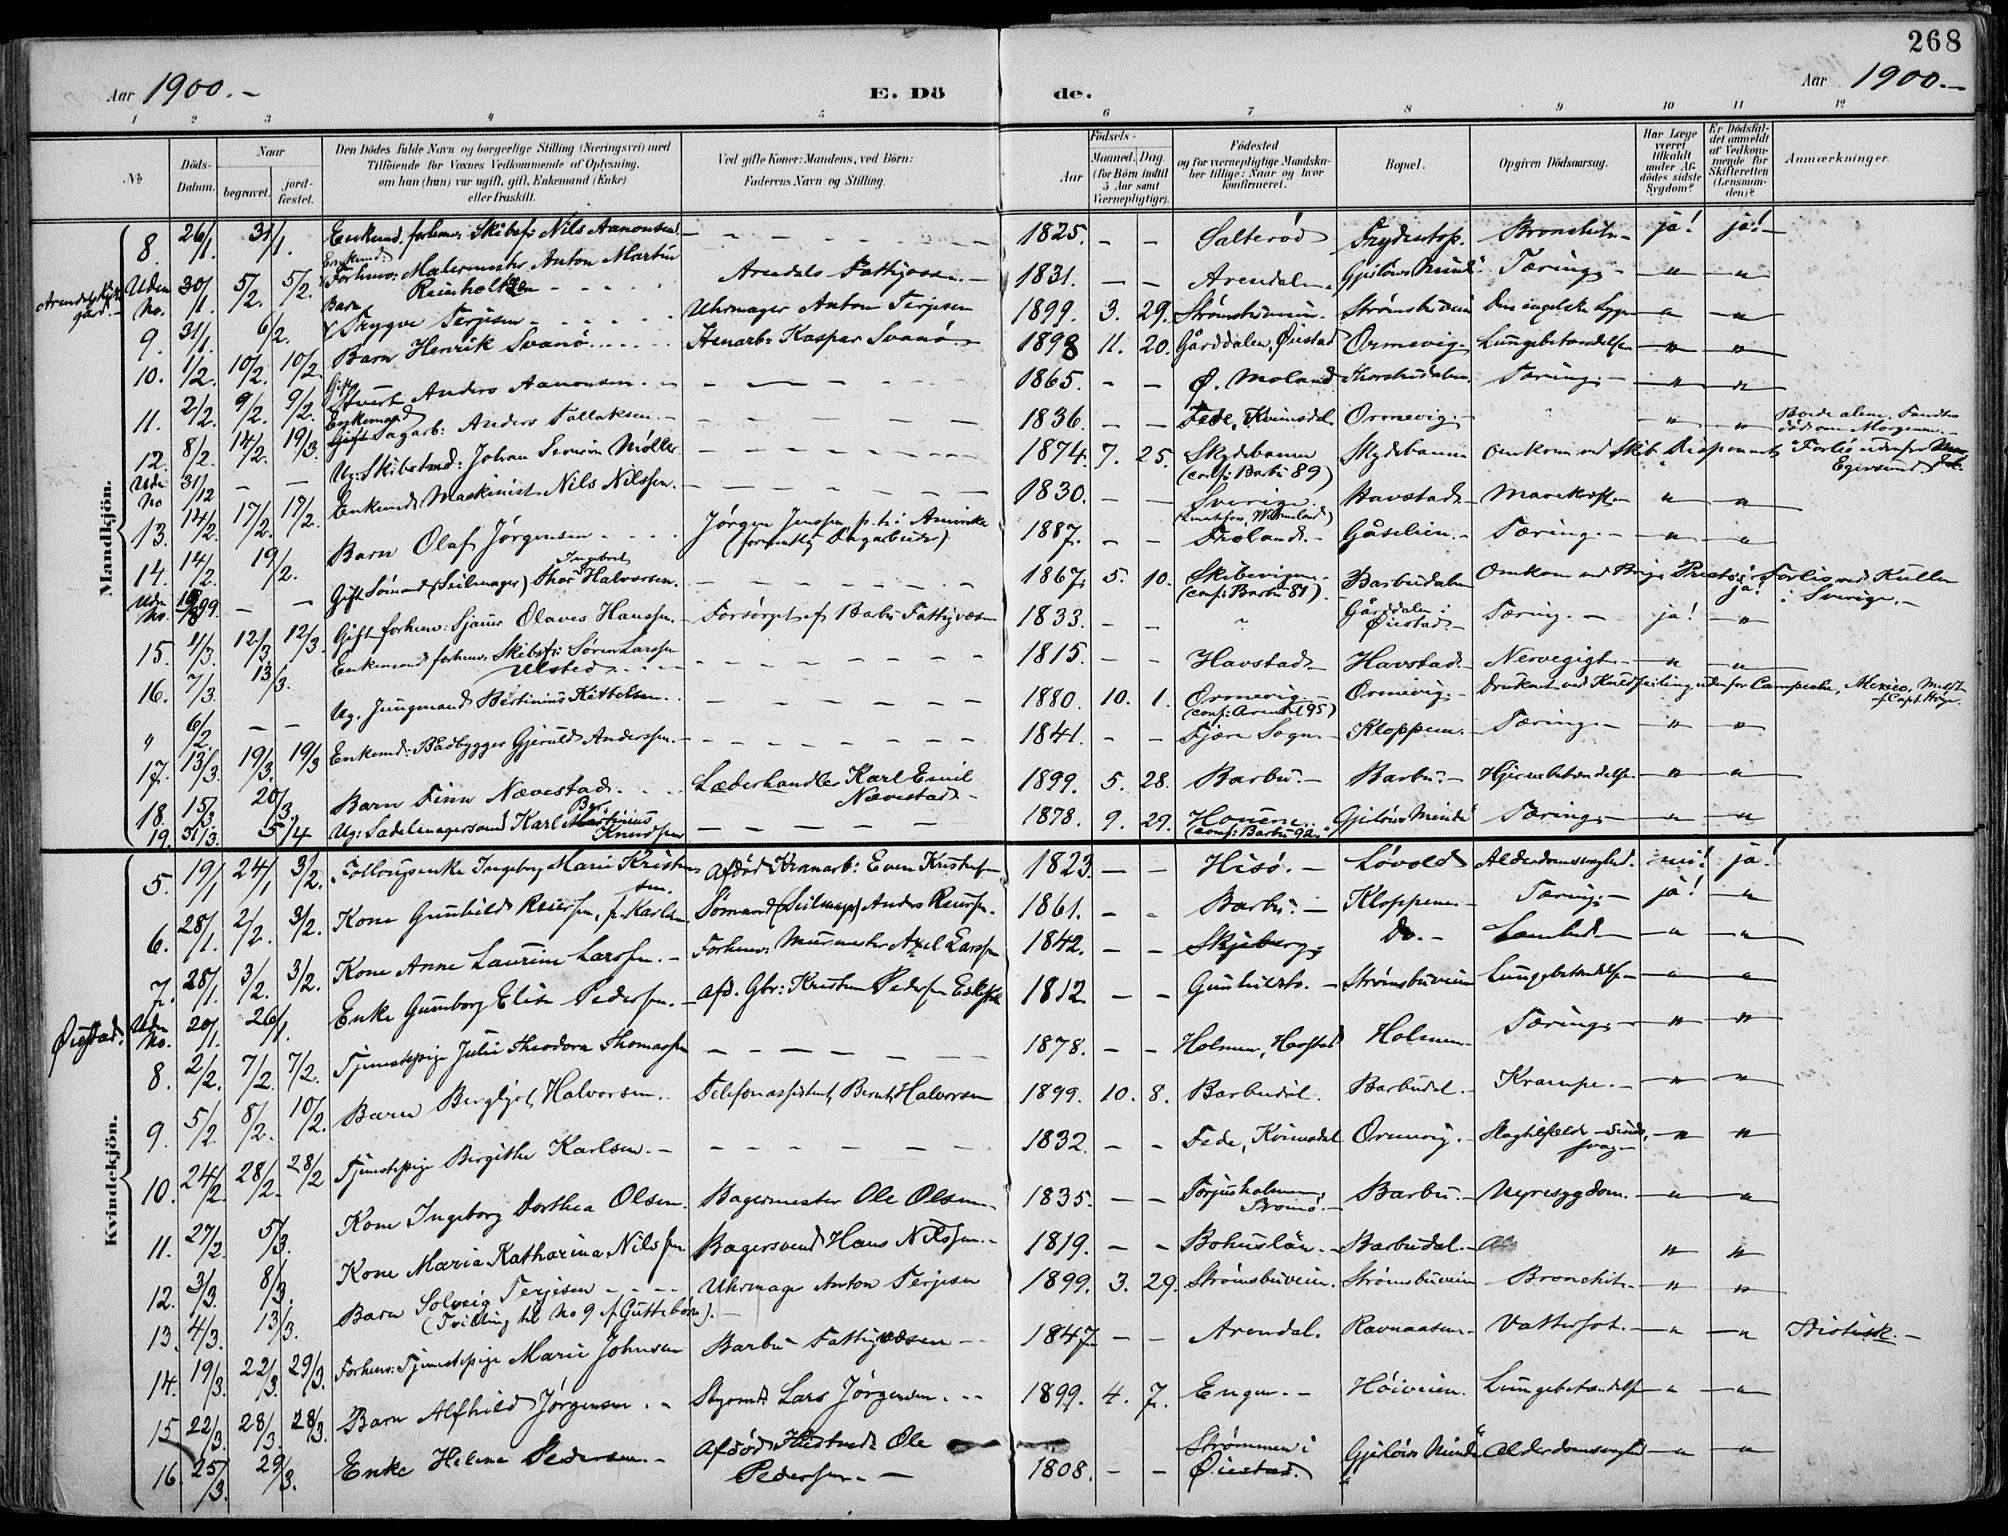 268
Aar 1900.- E. Dö de. Aar 1900.-
1 2 3 4 5 6 7 8 9 10 11 12
№
Döds-Datum.
Naar begravet. jordfæstet.
Den Dödes fulde Navn og borgerlige Stilling (Næringsvei) med Tilföiende for Voxnes Vedkommende af Oplysning, om han (hun) var ugift, gift, Enkemand (Enke) eller fraskilt.
Ved gifte Koner: Mandens, ved Börn: Faderens Navn og Stilling.
Födsels- Aar Maaned. Dag. (for Börn indtil 5 Aar samt Værnepligtige).
Födested og for værnepligtige Mandskaber tillige: Naar og hvor konfirmeret.
Bopæl.
Opgiven Dödsaarsag.
Har Læge været tilkaldt under Afdödes sidste Sygdom?
Er Dödsfaldet anmeldt af Vedkommende for Skifteretten (Lensmanden)?
Anmærkninger.
Mandkjön.
8. 26/1. 31/1. Enkemd. forhenv: Skibsf: Nils Aanonsen - 1825. - - Salterød Bronchit. - ja! ja! -
Uden No. 30/1. 5/2. 5/2. Enkemd. Forhenv: Malermester Anton Martin Reinholtzen Arendals Fattigvæsen. - 1831. - - Arendal. Gjeløws Minde Tæring. - " "
9. 31/1. 6/2. Barn Trygve Terjesen Uhrmager Anton Terjesen 1899. 3. 29. Strømsbuveien. Strømsbuveien Den engelske Syge " "
10. 1/2. 10/2. 10/2. Barn Henrik Svanø Stenarb: Kaspar Svanø. 1898 11. 20. Gårddalen, Øiestad Ormevig. Lungebetændelse " "
11. 2/2. 9/2. 9/2. Gift Anders Aanonsen. - 1865. - - Ø. Moland Tæring. - " "
12. 8/2. 14/2. 19/3. Enkemand Sagarb: Anders Tallaksen. - 1836. - - Fede, Kvinesdal Ormevig. - " " Boede alene, Fandtes død om Morgenen. -
Uden No 31/12 - - Ug: Skibstmd: Johan Severin Møller 1874. 7. 25. Skydebanen (conf: Barbu 89) Skydebanen Omkom ved Skib Forlis udenfor Egersund
13. 14/2. 17/2. 17/2. Enkemd: Maskinist Nils Nilssen. - 1830. - - Sverige Havstad. Mavekræft. - " "
14. 14/2. 19/2. Barn Olaf Jørgensen Jørgen Jenssen, p. t. i Amerika 1887. - - Froland. - Gåseleien. - Tæring. - " "
Uden No. 99. - - Gift Sømand (Seilmager) Thor Ingebret Halvorsen. 1867. 5. 10. Skibevigen. (conf: Barbu 81). Barbudalen Omkom ved Brig Forlis ved Kullen i Sverige. - ja!
15. 4/3. 12/3. 12/3. Gift forhenv: Sjauer Olaves Hanssen. - Forsørget af Barbu Fattigvæsen 1833. - - " Gårddalen i Øiestad. Tæring. - ja! "
16. 7/3. 13/3. Enkemand forhenv: Skibsf: Søren Larssen Ulsted 1815. - - Havstad Havstad. Nervegigt. - " "
" 6/2. - - Ug. Jungmand Bertinius Kittelsen. 1880. 10. 1. Ormevig. (conf: Arendal 95) Ormevig. Druknet ved Kuldseiling udenfor Campeche, Mexico,
17. 13/3. 19/3. 19/3 Enkemd: Bådbygger Gjeruld Anderssen. - 1841. - - Fjære Sogn. Kloppene. Tæring. - " "
18. 15/3. 20/3. Barn Finn Nævestad. Læderhandler Karl Emil Nævestad. 1899. 5. 28. Barbu. - Barbu. - Hjernebetændelse. " "
19. 31/3. 5/4 Ug: Sadelmagersvend Karl Martinius Knudsen 1878. 9. 29. (conf: Barbu 92) Gjeløws Minde Tæring. - " "
Kvindekjön.
5. 19/1 24/1 3/2. Ingeborg Marie Kristensen Afdød Kranarb: Even Kristensen 1823. - - Hisø. - Løvold Alderdomssvaghed. nei! ja!
6. 28/1. 2/2. 3/2. Kone Gunhild Reiersen, f. Karlsen Sømand (Seilmager) Anders Reiersen. 1861. - - Barbu. - Kloppene. Tæring. ja! "
7. 28/1. 3/2. 3/2. Kone Anne Laurine Larssen. - Forhenv: Murmester Axel Larssen 1842. - - Skjeberg. Do. - Lamhed. " "
Øiestad. Uden No. 20/1. 26/1. Enke Gunborg Elise Pedersen. - Afd. Gbr: Kristen Pedersen 1812. - - Strømsbuveien Lungebetændelse " "
8. 2/2. 7/2. 7/2. Tjenestepige Julie Theodora Thomassen 1878. - - Holmen, Havstad Holmen Tæring. - " "
9. 5/2 8/2. 10/2. Barn Bergljot Halvorsen. Telefonassistent Bernt Halvorsen 1899. 10. 8. Barbudal. Barbudal. Krampe. - " "
10. 24/2 28/2. 28/2 Tjenestepige Birgithe Karlsen. - 1832. - - Fede, Kvinesdal Ormevig. " "
11. 27/2. 5/3. Kone Ingeborg Dorthea Olsen. Bagermester Ole Olsen. 1835. - - Torjusholmen, Tromø. Barbu. Nyresygdom. " "
12. 3/3. 8/3. Kone Maria Katharina Nilssen Bagersvend Hans Nilssen. - 1819. - - Bohuslän. - Barbudal. " "
13. 4/3. 13/3. Barn Solveig Terjesen (Tvilling til No 9 af Guttebørn). Uhrmager Anton Terjesen 1899. 3. 29. Strømsbuveien. Strømsbuveien Bronchit. " "
14. 19/3. 22/3. 29/3. Forhenv: Tjenestepige Marie Johnsen Barbu Fattigvæsen 1847 - - Arendal. Ravnaasen. Vattersot. - " "
15 22/3. 28/3. 28/3. Barn Alfhild Jørgensen Styrmd: Lars Jørgensen. 1899. 4. 7. Engene. - Høiveien. Lungebetændelse " "
16. 25/3. 29/3. Enke Helene Pedersen. - Afdød Ole Pedersen. - 1808. - - Strømmen i Øiestad. Gjeløws Minde Alderdomssvaghed " "